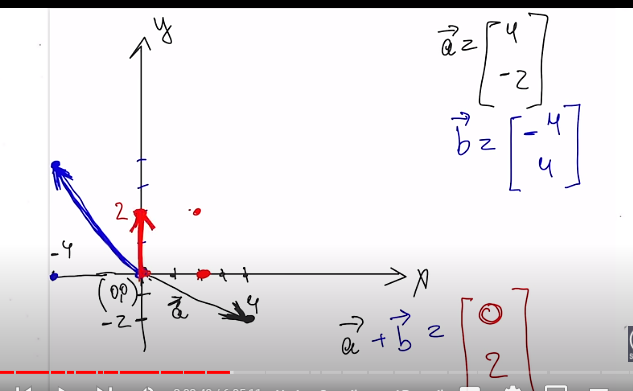 y
a = [4
-2]
b = [-4
4]
2
-4
(0,0)
-2
a
4
x
a + b = [0
2]